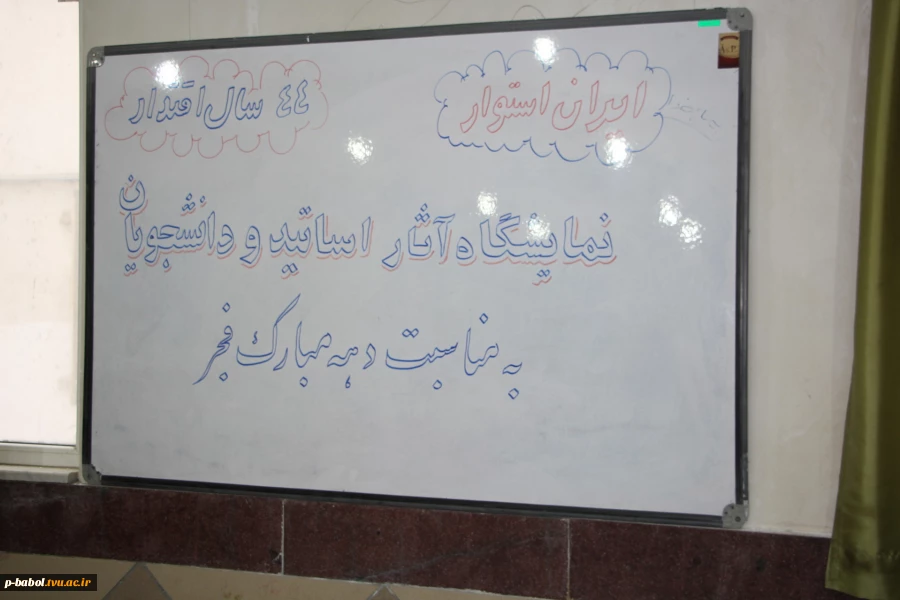 ایران استوار
۴۴ سال اقتدار
نمایشگاه آثار اساتید و دانشجویان
به مناسبت دهه مبارک فجر
p-babol.tvu.ac.ir